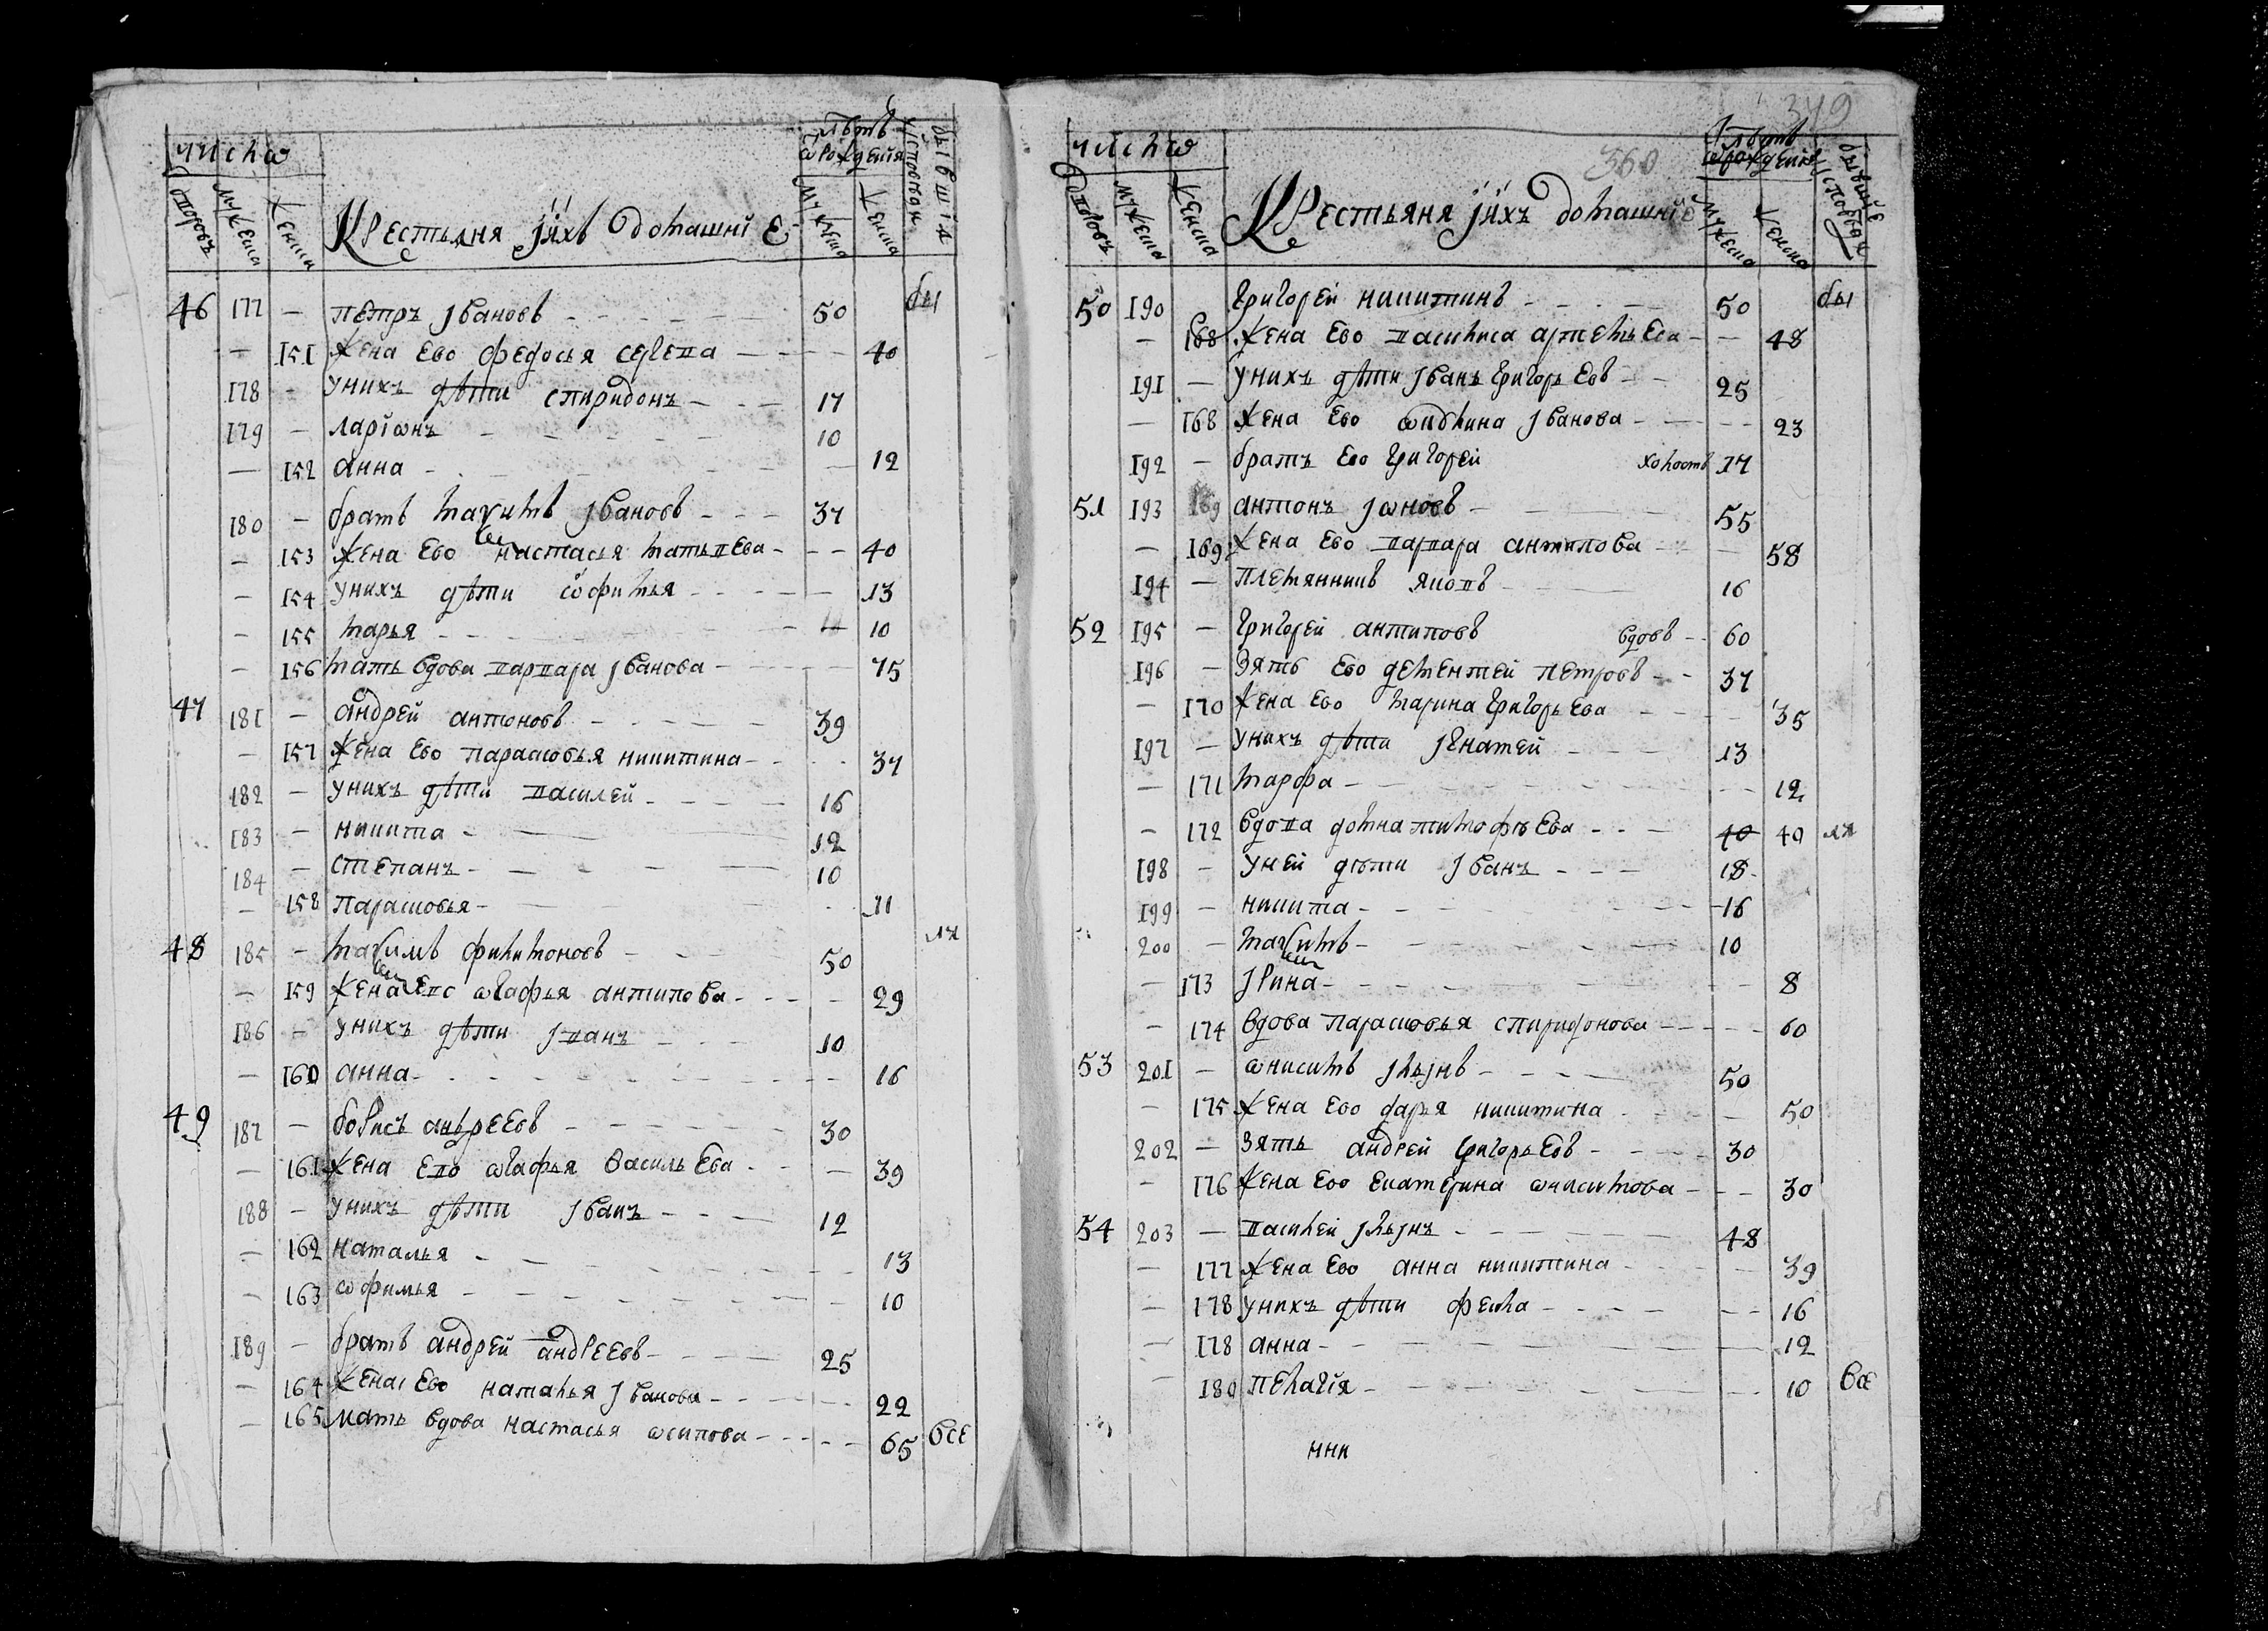 число
лѣтъ ѿ рожденія
у исповѣди бывшія
дворовъ
мужеска
женска
Крестьяня їихъ домашніе
мужеска
женска
46 177 — петръ івановъ 50 бы
— 151 жена ево федосья сергева 40
178 — у нихъ дѣти спиридонъ 17
179 — ларіѡнъ 10
— 152 анна 12
180 — братъ маѯимъ івановъ 37
— 153 жена ево настасья матвева 40
— 154 у нихъ дѣти софимья 13
— 155 марья 10
— 156 мать вдова варвара іванова 75
47 181 — андрей антоновъ 39
— 157 жена ево парасковья никитина 37
182 — у нихъ дѣти василей 16
183 — никита 12
184 — степанъ 10
— 158 парасковья 11
48 185 — маѯимъ филимоновъ 50
— 159 жена ево ѡгафья антипова 29
186 — у нихъ дѣти іванъ 10
— 160 анна 16
49 187 — борисъ андреевъ 30
— 161 жена ево ѡгафья васильева 39
188 — у нихъ дѣти іванъ 12
— 162 наталья 13
— 163 ѡфимья 10
189 — братъ андрей андреевъ 25
— 164 жена ево наталья іванова 22
— 165 мать вдова настасья ѡсипова 65 все
349
360
число
лѣтъ ѿ рожденія
бывшие у исповѣди
дворовъ
мужеска
женска
Крестьяня їихъ домашніе
мужеска
женска
50 190 григорей никитинъ 50 бы
— 168 жена ево василиса артемьева 48
191 — у нихъ дѣти іванъ григорьевъ 25
— 168 жена ево іванова 23
192 — братъ ево григорей холостъ 17
51 193 169 антонъ іѡновъ 55
— 169 жена ево варвара антипова 58
194 — племянникъ яковъ 16
52 195 — григорей антиповъ вдовъ 60
196 — зять ево дементей петровъ 37
— 170 жена ево марина григорьева 35
197 — у нихъ дѣти ігнатей 13
— 171 марфа 12
— 172 вдова домна тимофѣева 40 40
198 — у ней дѣти іванъ 18
199 — никита 16
200 — маѯимъ 10
— 173 ірина 8
— 174 вдова парасковья спиридонова 60
53 201 — ѡнисимъ ільінъ 50
— 175 жена ево дарья никитина 50
202 — зять андрей григорьевъ 30
— 176 жена ево екатерина ѡнисимова 30
54 203 — василей ільінъ 48
— 177 жена ево анна никитина 39
— 178 у нихъ дѣти фекла 16
— 178 анна 12
— 180 пелагія 10 все